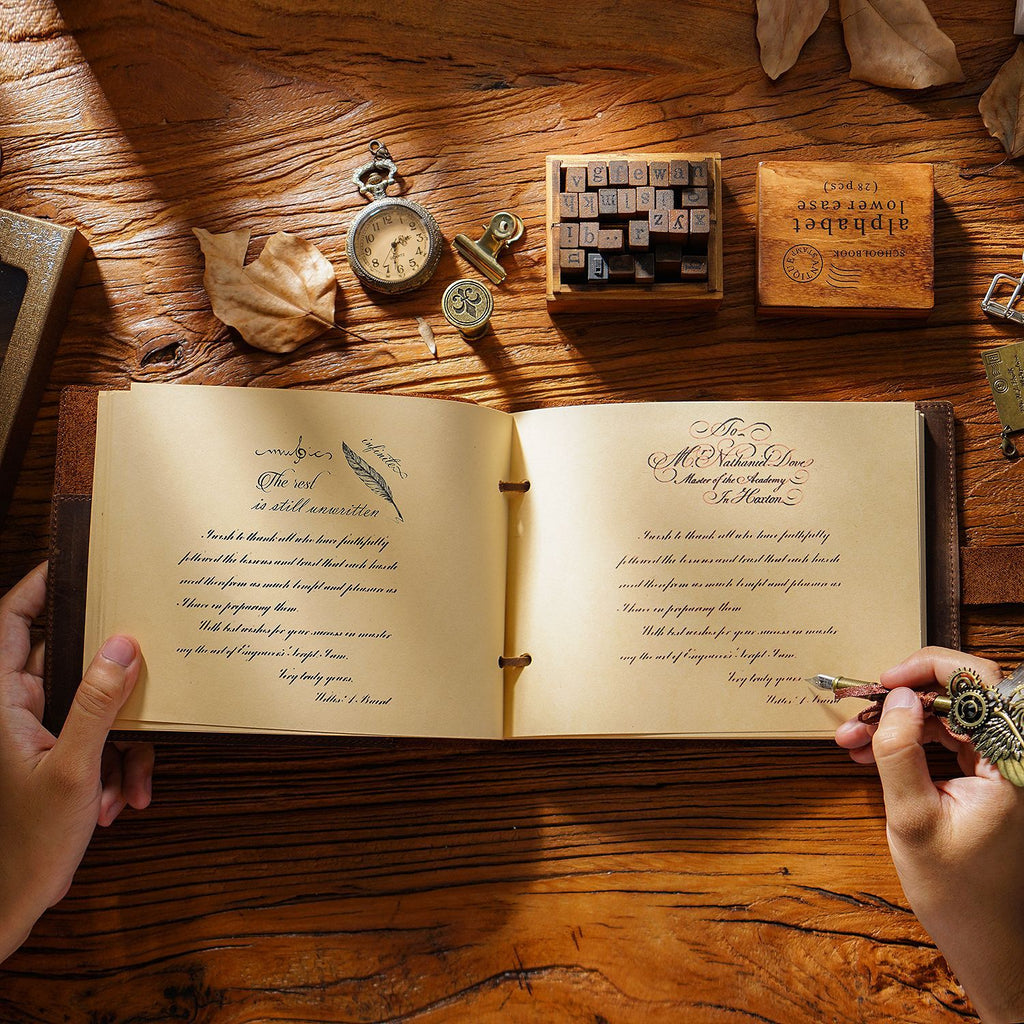 music
infinite
The rest
is still unwritten
I wish to thank all who have faithfully
followed the lessons and trust that each has de
rived therefrom as much benefit and pleasure as
I have in preparing them.
With best wishes for your success in master
ing the art of Engravers' Script. I am.
Very truly yours,
To
Mr. Nathaniel Dove
Master of the Academy
In Hoxton
I wish to thank all who have faithfully
followed the lessons and trust that each has de
rived therefrom as much benefit and pleasure as
I have in preparing them
With best wishes for your success in master
ing the art of Engravers' Script. I am.
Very truly yours
SCHOOLBOOK
ANTIQUE
alphabet
lower case
(28 pcs)